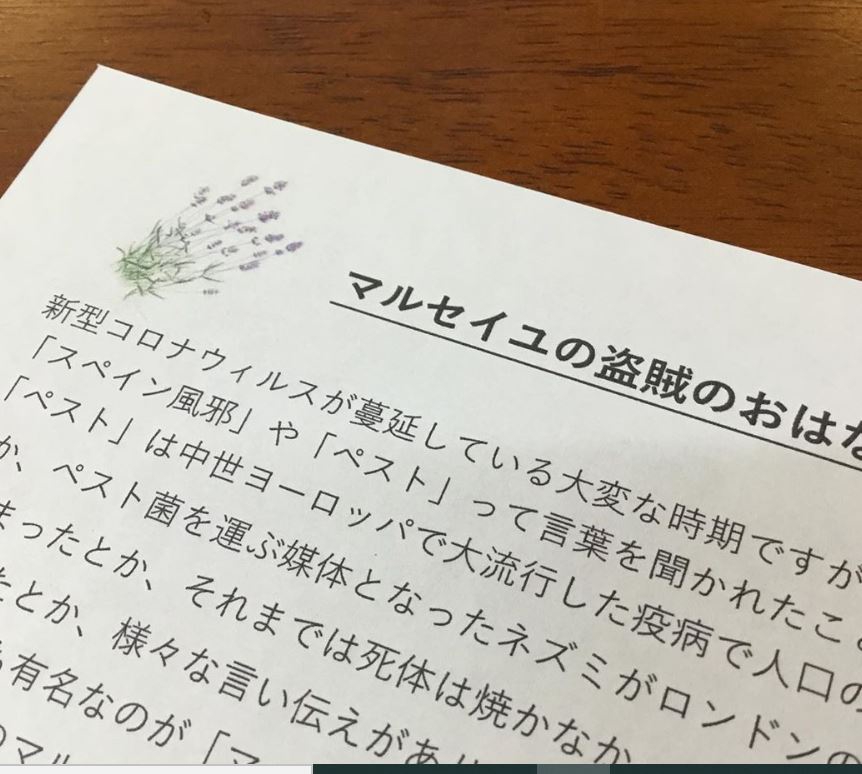 マルセイユの盗賊のおはな
新型コロナウィルスが蔓延している大変な時期ですが
「スペイン風邪」や「ペスト」って言葉を聞かれたこ
「ペスト」は中世ヨーロッパで大流行した疫病で人口の
か、ペスト菌を運ぶ媒体となったネズミがロンドンの
まったとか、それまでは死体は焼かなか
たとか、様々な言い伝えがあり
も有名なのが「マ
のマル